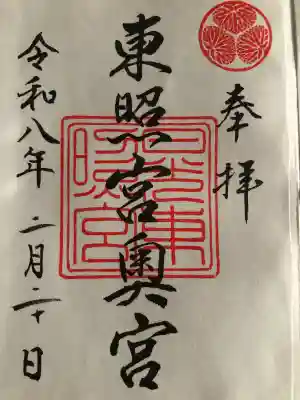 奉拝
東照宮奥宮
日光東
照宮
令和八年二月二十日